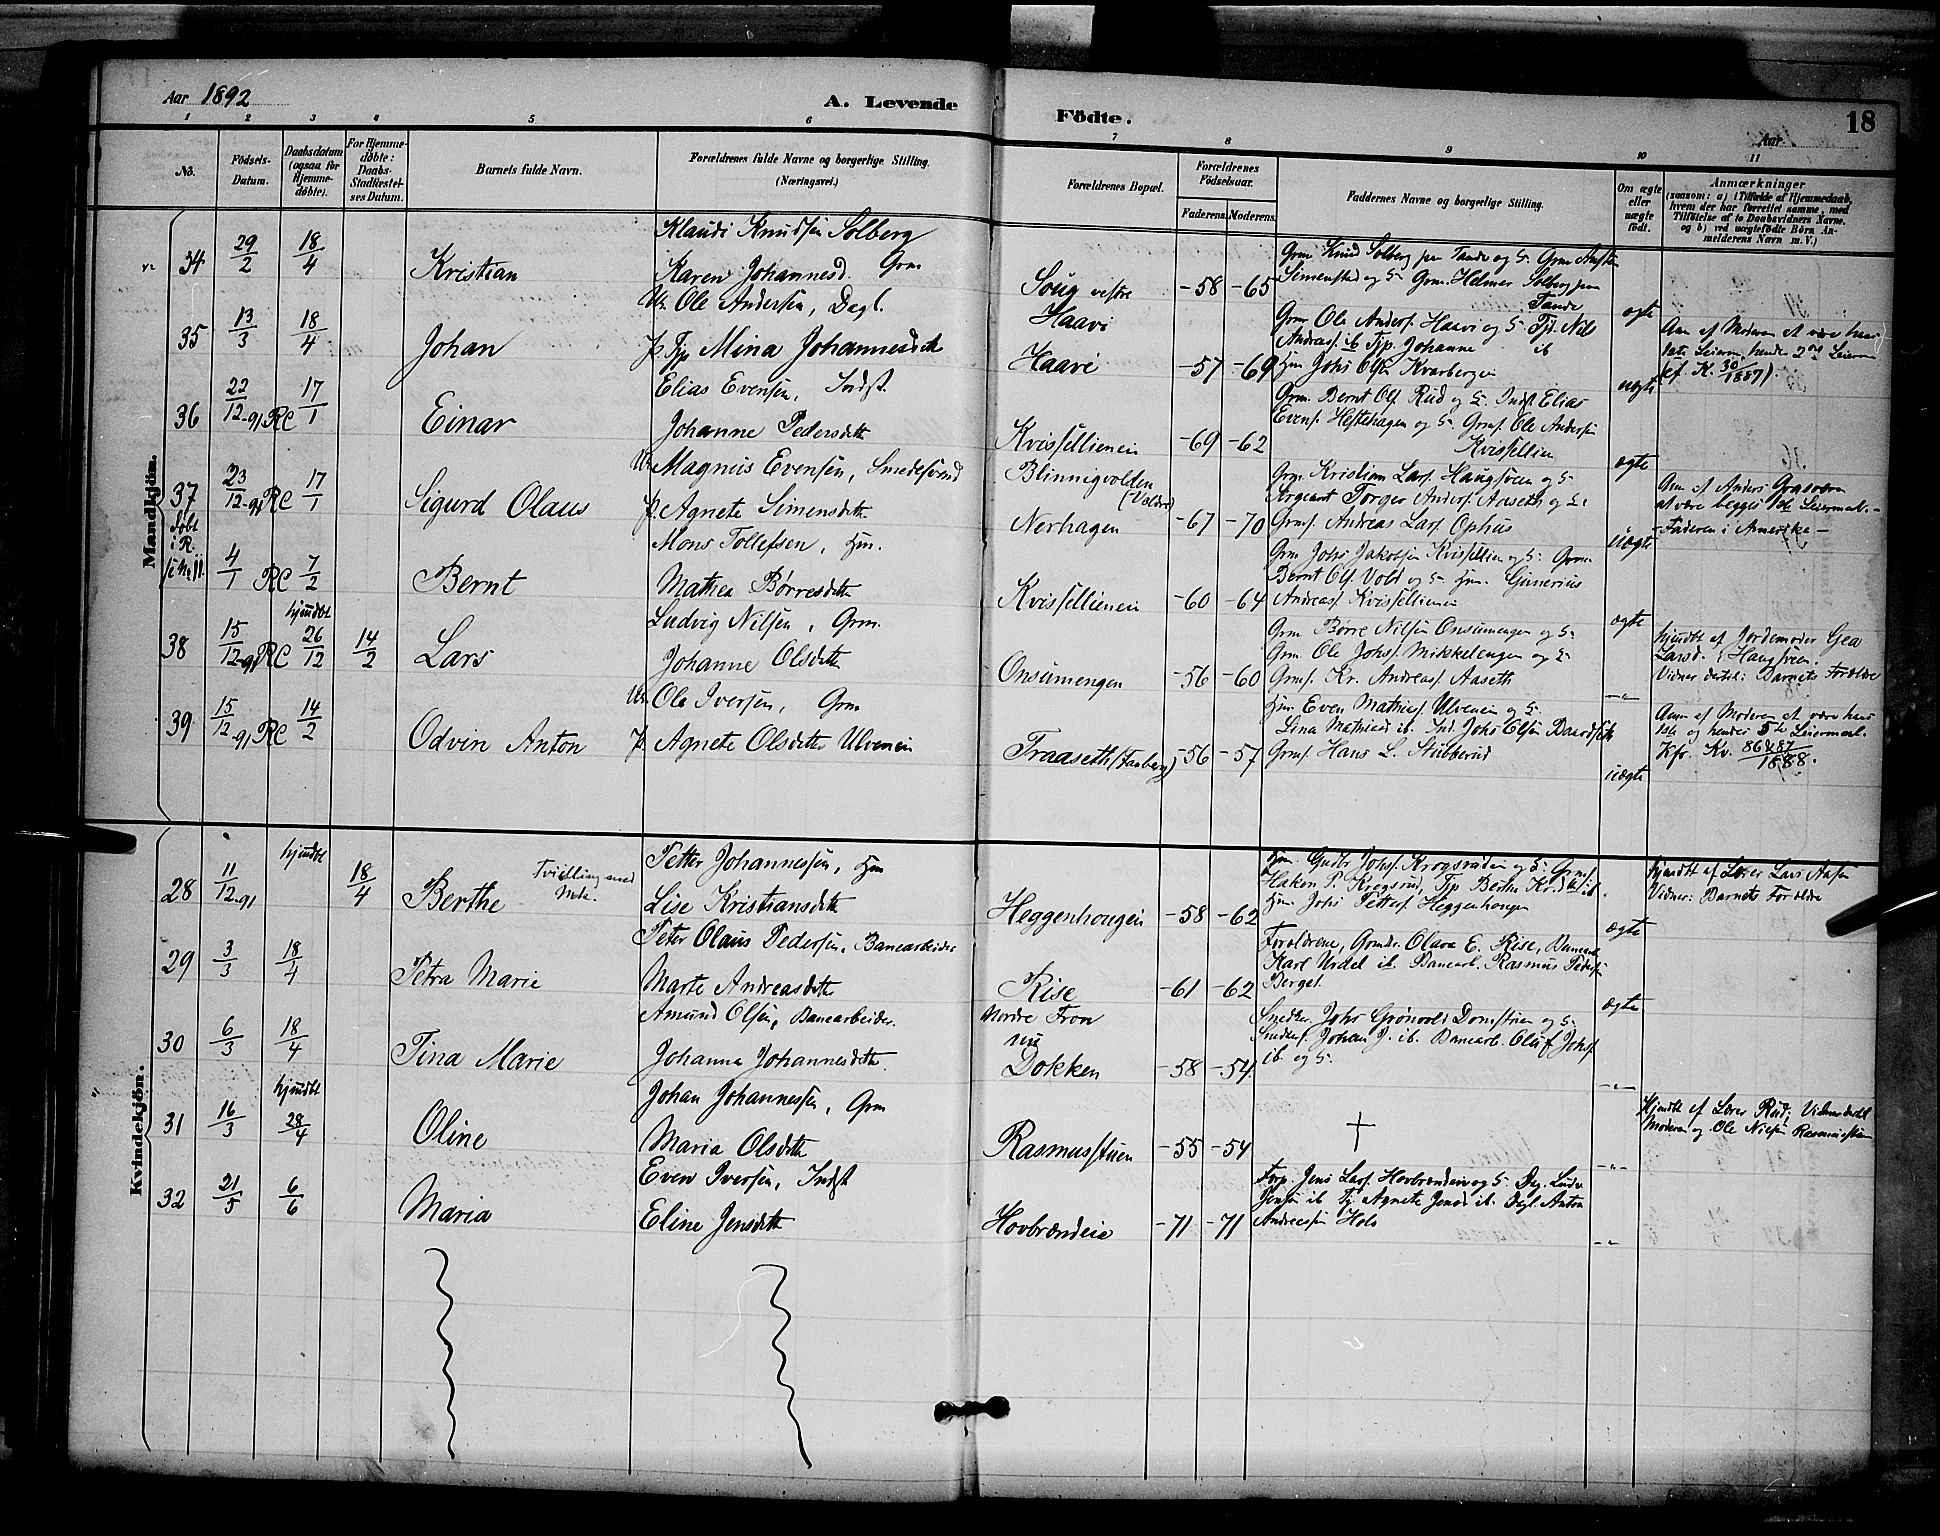 Aar 1892
A. Levende
Födte.
18
Aar
1 2 3 4 5 6 7 8 9 10 11
No.
Födsels-
Datum.
Daabsdatum
(ogsaa for
Hjemme-
døbte).
For Hjemme-
døbte:
Daabs-
Stadfæstel-
ses Datum.
Barnets fulde Navn.
Forældrenes fulde Navne og borgerlige Stilling.
(Næringsvei.)
Forældrenes Bopæl.
Forældrenes
Födselsaar.
Faderens. Moderens.
Faddernes Navne og borgerlige Stilling.
Om ægte
eller
uægte
født.
Anmærkninger
(saasom: a) i Tilfælde af Hjemmedaab,
hvem der har forrettet samme, med
Tilföielse af to Daabsvidners Navne.
og b) ved uægtefödte Börn An-
melderens Navn m. V.)
Mandkjön.
34 29/2 18/4 Kristian
Klaudi Knudsen Solberg
Karen Johannesd. Grm
Soug vestre -58 -65
Grm Knud Solberg Tande og H. Grm
Simenstad og H. Grm. Helmer Solberg
Tande
ægte
35 13/3 18/4 Johan
Uk. Ole Andersen, Dagl.
P. Tjp Mina Johannesdtt
Haavi
Haavi -57 -69
Grm Ole Anders. Haavi og H. Tjd. Nils
Andreas. ib Tjp. Johanne ib
Hm Johs Olsen Kvarbergen
uægte
Ann. af Moderen at være hans
1ste Leierm. hendes 2det Leierm
(cf. K. 30/1887).
36 22/12-91 RC 17/1 Einar
Elias Evensen, Indst.
Johanne Pedersdtt
Kvissllieneie -69 -62
Grm. Bernt Ols. Rud og H. Indst Elias
Evens. Heftehagen og H. Grms. Ole Andersen
Kvissllien
ægte
37 23/12-91 RC 17/1 Sigurd Olaus
Uk Magnus Evensen, Smedesvend
P. Agnete Simensdtt
Blinnigvolden
(Valdre)
Nerhagen -67 -70
Grm. Kristian Lars. Haugsveen og H.
Sergeant Torger Anders. Aaseth og H.
Grms. Andreas Lars. Ophus
uægte
Ann. af Anders Grasveen
at være begges 1ste Leiermaal. -
- Faderen i Amerika -
Døbt
i R.
4/1 RC 7/2 Bernt
Mons Tollefsen, Hm.
Mathea Børresdtt
Kvisslieneie -60 -64
Grm Johs Jakobsen Kvissllien og H. Grm
Bernt Ols. Vold og H. Hm. Gunerius
Andreas. Kvisslieneie
ægte
38 15/12-91 RC hjmdbt 26/12 14/2 Lars
Ludvig Nilsen, Grm.
Johanne Olsdtt
Onsumengen -56 -60
Grm. Børre Nilsen Onsumengen og H.
Grm. Ole Johs. Mikkelengen og H.
Grms. Kr. Andreas. Aaseth
-"-
Hjmdbt af Jordemoder Gea
Larsd. i Haugsveen.
Vidner dertil: Barnets Forældre
39 15/12-91 RC 14/2 Odvin Anton
Uk. Ole Iversen, Grm
P. Agnete Olsdtt Ulveneie
Traaseth (Faaberg) -56 -57
Hm. Even Mathias. Ulveneie og H.
Lina Mathiasd ib. Ind. Johs Olsen Baardseth
Grms. Hans L. Stubberud
uægte
Ann. af Moderen at være hans
1ste og hendes 5te Leiermaal.
Kfr. Kv. 86 & 87/1888.
Kvindekjön.
28 11/12-91 hjmdbt 18/4 Berthe
Tvilling med
Petter Johannessen, Hm
Lise Kristiansdtt
Heggenhougeie -58 -62
Hm. Gudbr Johs. Krogsrudeie og H. Grms.
Haken P. Krogsrud, Tjp Berthe Kr.dtt ib.
Hm. Johs Petters. Heggenhougen
ægte
Hjmdbt af Lærer Lars Aasen
Vidner: Barnets Forældre
29 3/3 18/4 Petra Marie
Peter Olaus Pedersen, Banearbeider
Marte Andreasdtt
Rise -61 -62
Forældrene, Grmdr. Olava E. Rise, Banearb
Karl Urdel ib. Banearb. Rasmus Peders.
Berget.
ægte
30 6/3 18/4 Tina Marie
Amund Olsen, Banearbeider.
Johanna Johannesdtt.
Nordre Fron
nu
Dokken -58 -54
Snedker Johs Grønvold Domstuen og H.
Snedkers. Johan J. ib. Banearb. Oluf Johs.
ib. og H.
-"-
31 16/3 hjmdbt 28/4 Oline
Johan Johannessen, Grm
Maria Olsdtt
Rasmusstuen -55 -54
†
-"-
Hjmdbt af Lærer Rud; Vidner dertil
Moderen og Ole Nilsen Rasmusstuen
32 21/5 6/6 Maria
Even Iversen, Indst
Eline Jensdtt
Hovbrændeie -71 -71
Forp Jens Lars. Hovbrændeie og H. Dag. Ludv
Jensen ib Tj. Agnete Jensd ib. Dagl. Anton
Andreassen Hole
-"-